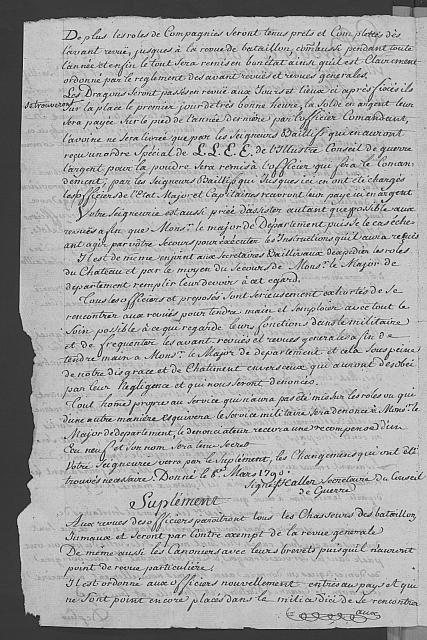 De plus les roles de Compagnies Seront tenus prêts et Complettes dès
l'avant revüe, jusques à la revüe de bataillon, comm'aussi pendant toute
l'année et enfin le tout Sera remis en bon état ainsi qu'il est Clairement
ordonné par le reglement des avant revües et revües generales.
Les Dragons Seront passés en revüe aux Jours et lieux ci après fixés ils
se trouveront Sur la place le premier jour de très bonne heure, la Solde en argent leur
Sera payée Sur le pied de l'année derniere par l'officier Comandant,
l'avoine ne Sera livrée que par les Seigneurs Baillifs qui en auront
reçu un ordre Spécial de L.L.E.E. de l'Illustre Conseil de guerre
l'argent pour la poudre Sera remis à l'officier qui Sera le Coman-
dement, par les Seigneurs Baillifs qui Jusques ici en ont été chargés
les officiers de l'Etat Major et Capitaines recevront leur paye ici en argent
Votre Seigneurie est aussi priée d'assister autant que possible aux
revües afin que Mons.r le major de Département puisse le cas éche-
ant agir par vôtre Secours pour éxécuter les Instructions qu'il aura reçües
Il est de même enjoint aux Secretaires Baillivaux d'expedier les roles
du Chateau et par le moyen du Secours de Mons.r le Major de
departement remplir leur devoir à cet egard.
Tous les officiers et proposés Sont Serieusement exhortés de Se
rencontrer aux revües pour tendre main et S'emploier avec tout le
Soin possible à ce qui regarde leurs fonctions dans le militaire
et de frequenter les avant revües et revües generales afin de
tendre main à Mons.r le Major de departement et cela Sous peine
de notre disgrace et de Chatiment envers ceux qui auront desobéi
par leur Negligence et qui nous Seront denoncés.
Tout home propre au Service qui n'aura pas été mis Sur les roles ou qui
d'une autre maniere esquivera le Service militaire Sera denoncé à Mons.r le
Major de departement, le denonciateur recevra une recompense d'un
Ecu neuf et Son nom Sera tenu Secret
Votre Seigneurie verra par le Suplement, les Changemens qui ont été
trouvés necessaire. Donné le 6.e Mars 1790.
Signé Haller Secretaire du Conseil
de Guerre
Suplement
Aux revües des officiers paroitront tous les Chasseurs des bataillon
Jumeaux et Seront par Contre exempt de la revüe generale
De même aussi les Canoniers avec leurs brevets puisqu'il n'auront
point de revüe particuliere.
Il est ordonné aux officiers nouvellement entrés au pays et qui
ne Sont point encore placés dans le milice d'ici de Se rencontrer
aux